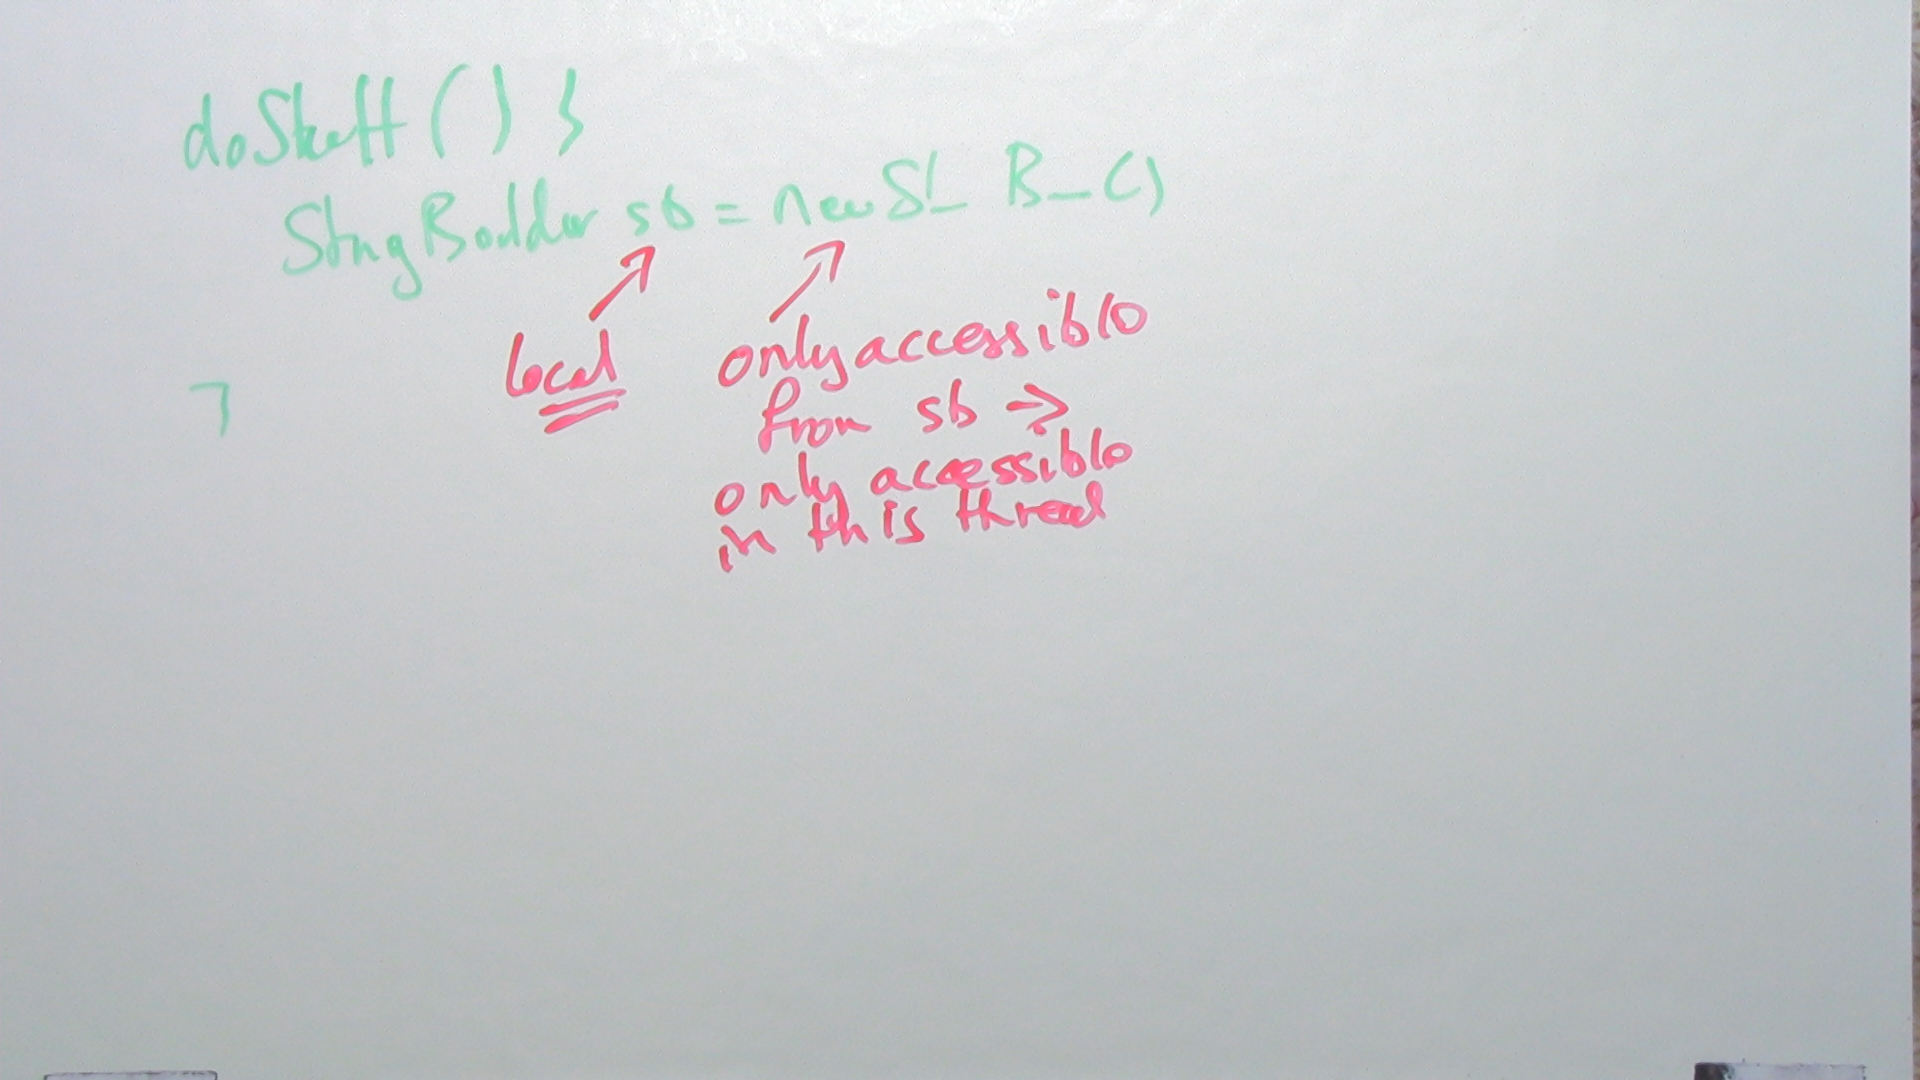 doStuff() {
StringBuilder sb = new St_ B_()
local
only accessible
from sb →
only accessible
in this thread
}